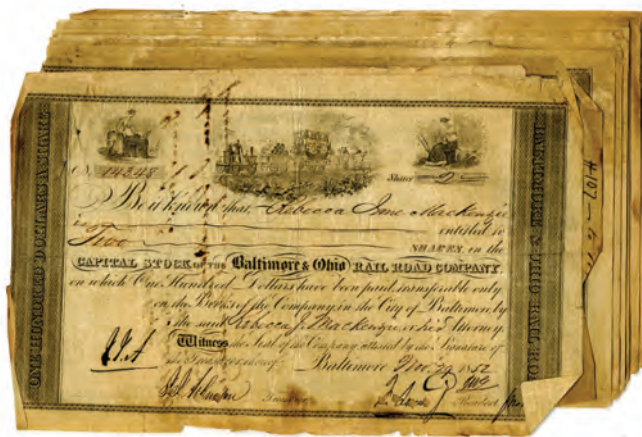 No. 14348 Shares 2
Be it known that, Rebecca Jane Mackenzie
is entitled to
Two SHARES, in the
CAPITAL STOCK OF THE Baltimore & Ohio RAIL ROAD COMPANY.
on which One Hundred Dollars have been paid, transferable only
on the Books of the Company, in the City of Baltimore by
the said Rebecca J. Mackenzie or her Attorney
Witness the Seal of the Company attested by the Signature of
the Treasurer thereof.
Baltimore Nov. 1852
Treasurer
President
ONE HUNDRED DOLLARS A SHARE
BALTIMORE & OHIO RAIL ROAD